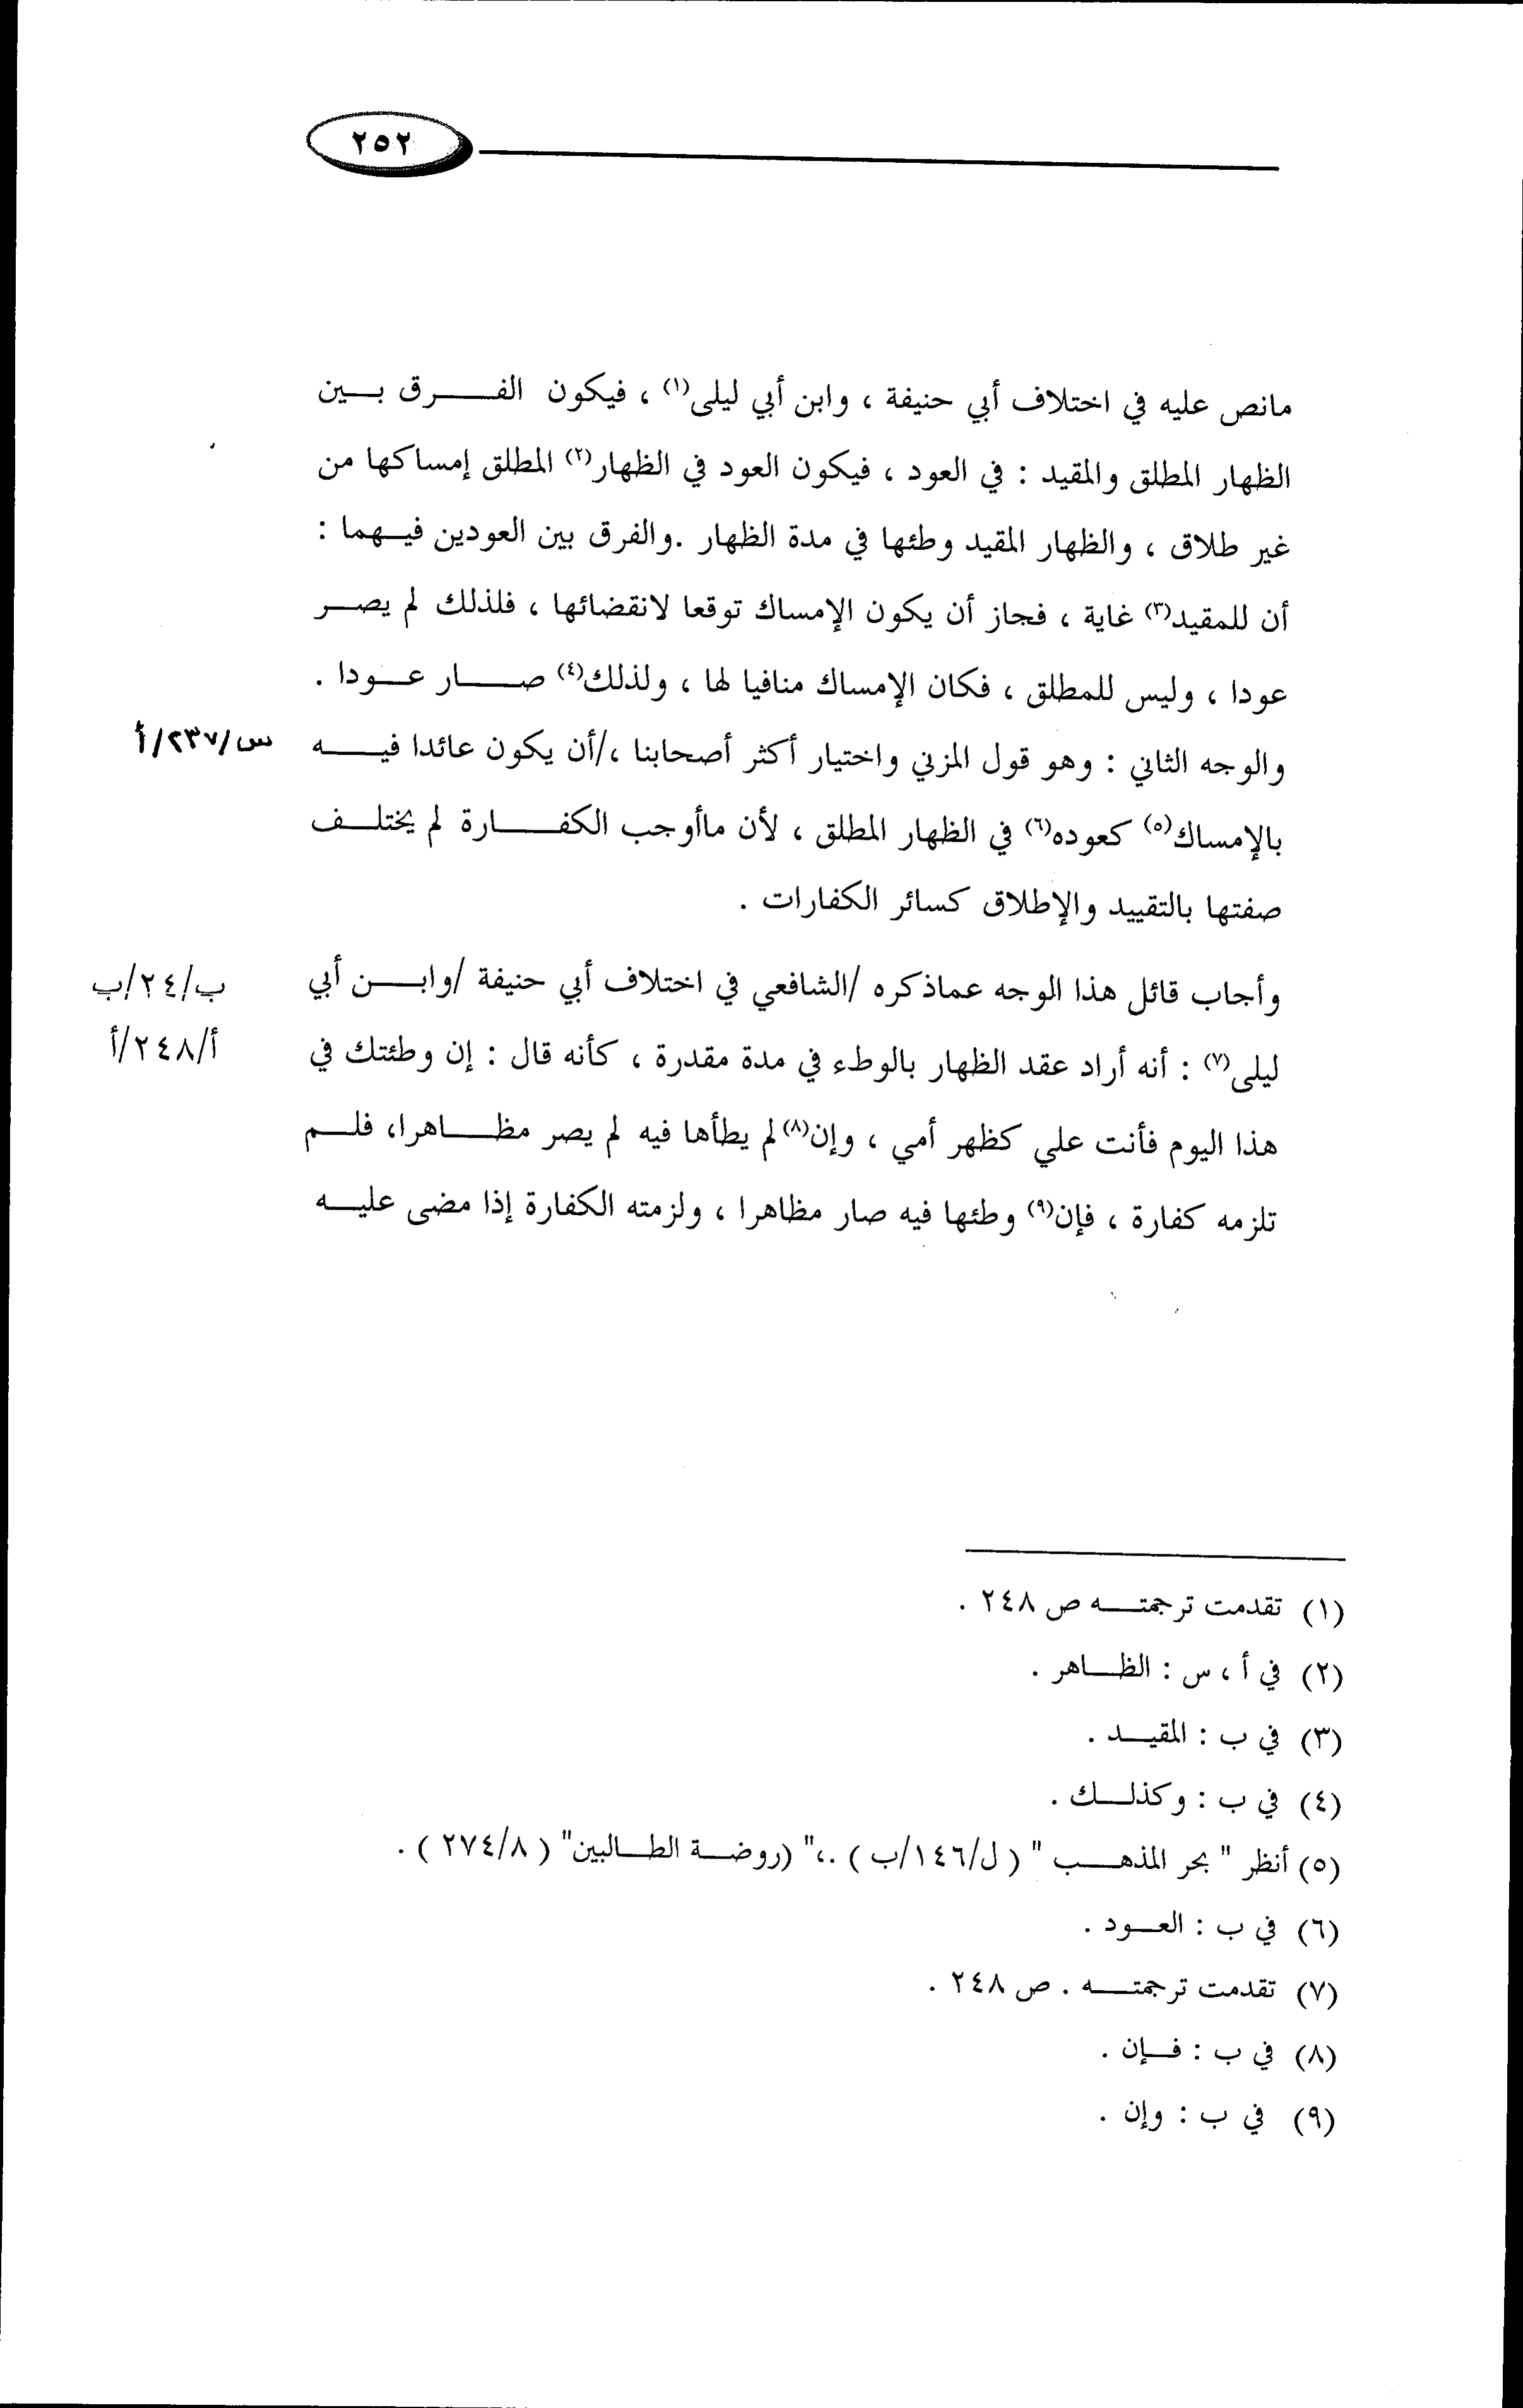 ٢٥٢
مانص عليه في اختلاف أبي حنيفة ، وابن أبي ليلى(١) ، فيكون الفرق بين
الظهار المطلق والمقيد : في العود ، فيكون العود في الظهار(٢) المطلق إمساكها من
غير طلاق ، والظهار المقيد وطئها في مدة الظهار .والفرق بين العودين فيهما :
أن للمقيد(٣) غاية ، فجاز أن يكون الإمساك توقعا لانقضائها ، فلذلك لم يصر
عودا ، وليس للمطلق ، فكان الإمساك منافيا لها ، ولذلك(٤) صار عودا .
والوجه الثاني : وهو قول المزني واختيار أكثر أصحابنا ،/أن يكون عائدا فيه س/٢٣٧/أ
بالإمساك(٥) كعوده(٦) في الظهار المطلق ، لأن ماأوجب الكفارة لم يختلف
صفتها بالتقييد والإطلاق كسائر الكفارات .
وأجاب قائل هذا الوجه عماذكره /الشافعي في اختلاف أبي حنيفة /وابن أبي ب/٢٤/ب
ليلى(٧) : أنه أراد عقد الظهار بالوطء في مدة مقدرة ، كأنه قال : إن وطئتك في أ/٢٤٨/أ
هذا اليوم فأنت علي كظهر أمي ، وإن(٨) لم يطأها فيه لم يصر مظاهرا، فلم
تلزمه كفارة ، فإن(٩) وطئها فيه صار مظاهرا ، ولزمته الكفارة إذا مضى عليه
(١) تقدمت ترجمته ص ٢٤٨ .
(٢) في أ ، س : الظاهر .
(٣) في ب : المقيد .
(٤) في ب : وكذلك .
(٥) أنظر " بحر المذهب " ( ل/١٤٦/ب ) .،" (روضة الطالبين" ( ٢٧٤/٨ ) .
(٦) في ب : العود .
(٧) تقدمت ترجمته . ص ٢٤٨ .
(٨) في ب : فإن .
(٩) في ب : وإن .